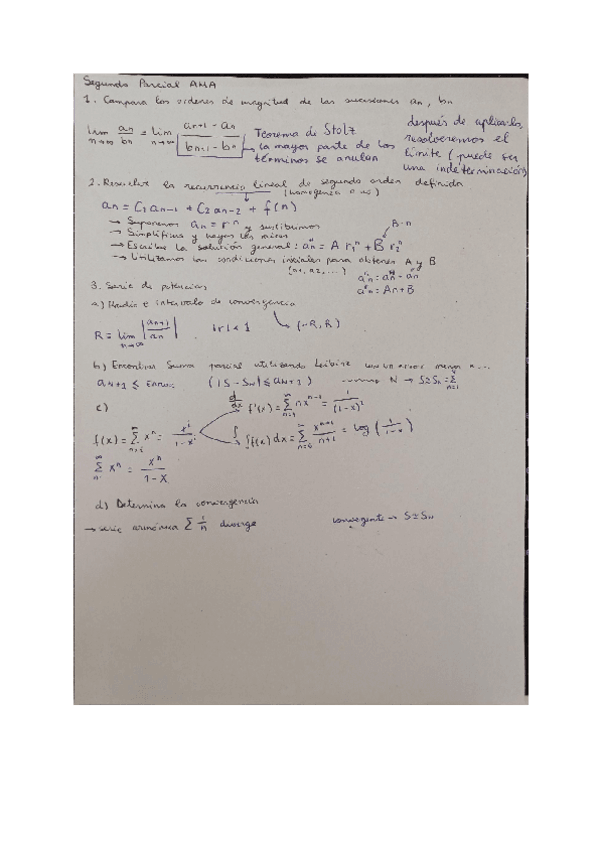 Segundo Parcial AMA
1. Compara los ordenes de magnitud de las sucesiones an, bn
lim n→∞ an/bn = lim n→∞ (an+1 - an)/(bn+1 - bn) Teorema de Stolz
→ la mayor parte de los términos se anulan
después de aplicarlo,
resolveremos el
límite (puede ser
una indeterminación)
2. Resolver la recurrencia lineal de segundo orden definida
(homogenea o no)
an = C1 an-1 + C2 an-2 + f(n)
→ Suponemos an = r^n y sustituimos
→ Simplificas y hayas las raices
B·n
→ Escribe la solución general: an = A r1^n + B r2^n
→ Utilizamos las condiciones iniciales para obtener A y B
(a1, a2, ...)
an = An + B
3. Serie de potencias
a) Radio e intervalo de convergencia
R = lim n→∞ |an+1/an| |r| < 1 (-R, R)
b) Encontrar Suma parcial utilizando Leibniz con un error menor a ...
aN+1 ≤ Error (|S - SN| ≤ aN+1) N → S≅SN = Σ n=1
c)
d/dx f'(x) = Σ n=1 ∞ n x^n-1 = 1/(1-x)^2
f(x) = Σ n=i ∞ x^n = x^i/(1-x)
∫ ∫f(x) dx = Σ n=0 ∞ x^n+1/(n+1) = log (1/(1-x))
Σ n ∞ x^n = x^n/(1-x)
d) Determina la convergencia
→ serie armónica Σ 1/n diverge convergente → S≅SN